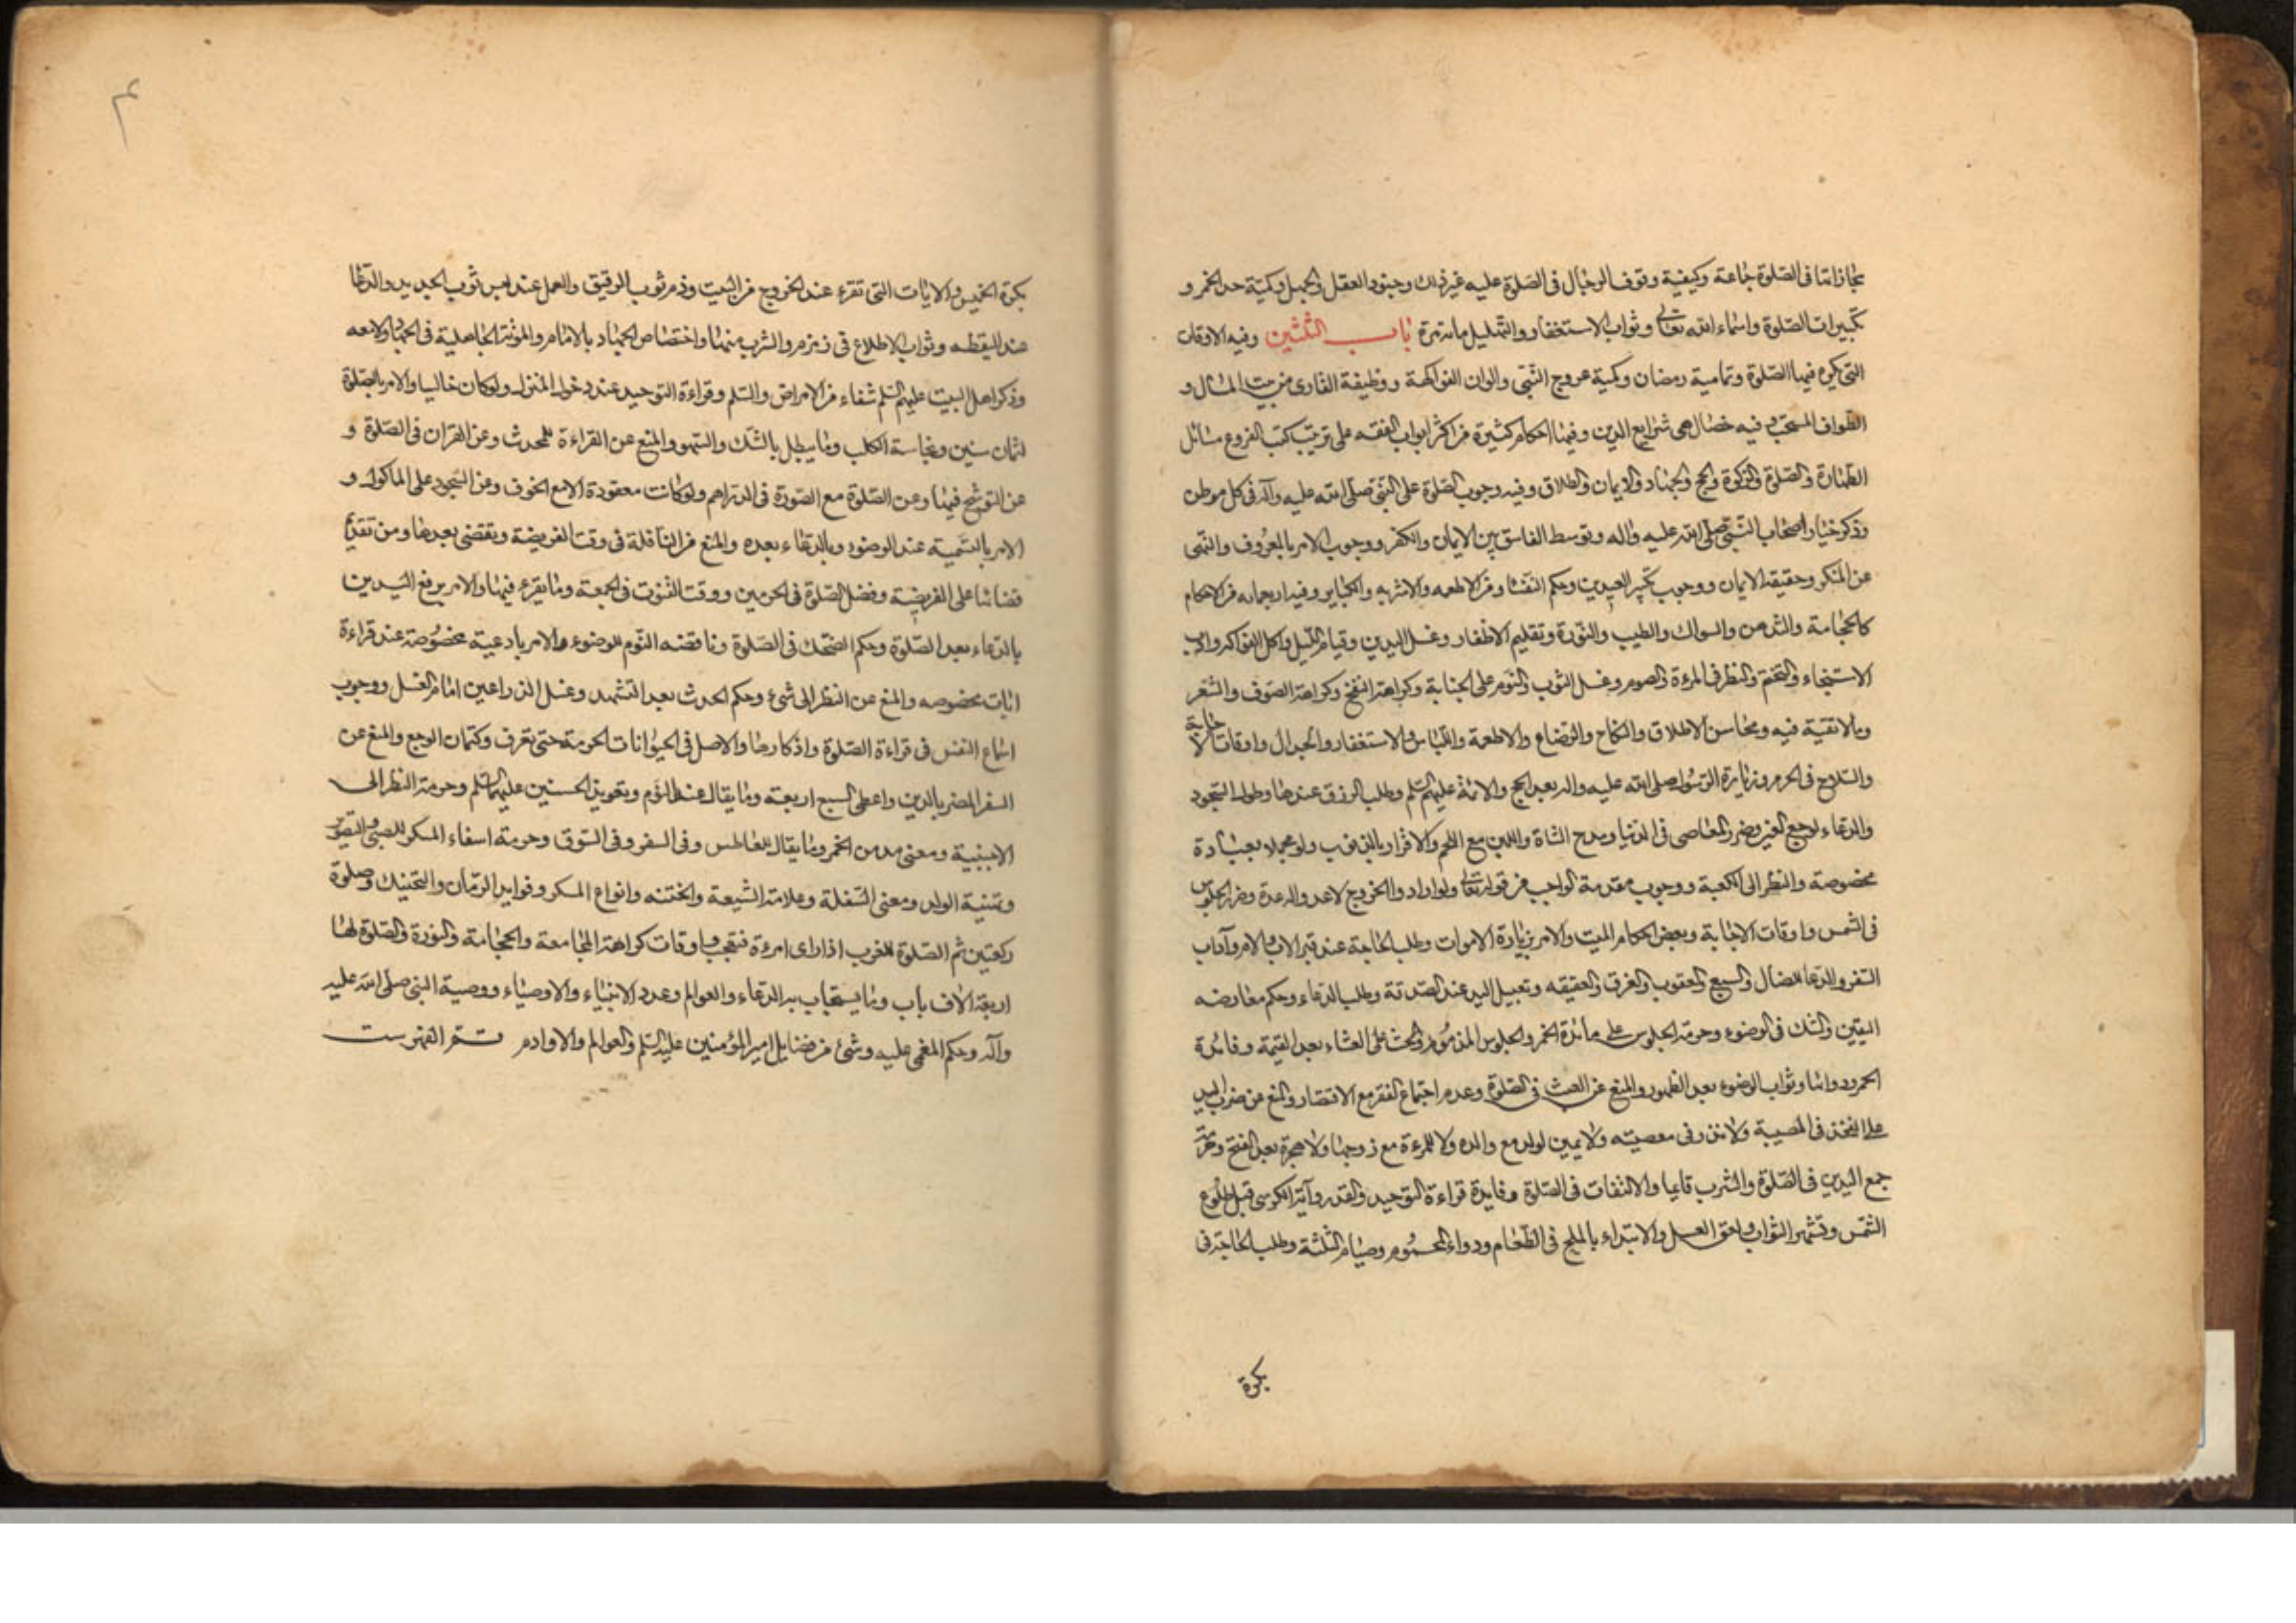 بكرة
تكبيرات الصلوة واسماء الله تعالى وثواب الاستغفار والتهليل مائة مرة باب الثلثين وفيه الاوقات
التي تكره فيها الصلوة وتمامية رمضان وكمية عروج النبي والوان الفواكهة ووظيفة القارى من بيت المال و
الطواف المستحب وفيه خصال هى شرايع الدين وفيها احكام كثيرة من اكثر ابواب الفقه على ترتيب كتب الفروع مسائل
الطهارة والصلوة والزكوة والحج والجهاد والايمان والطلاق وفيه وجوب الصلوة على النبى صلى الله عليه وآله فى كل موطن
وذكر خيار اصحاب النبى صلى الله عليه واله وتوسط الفاسق بين الايمان والكفر ووجوب الامر بالمعروف والنهى
عن المنكر وحقيقة الايمان ووجوب تكبير العيدين وحكم النفثا ومن الاطعمه والاشربه والكباير وفيه اربعمائه من الاحكام
كالحجامة والدهن والسواك والطيب والنورة وتقليم الاظفار وغسل اليدين وقيام الليل واكل الفواكه واداب
الاستنجاء والتختم والنظر فى المرءة والصوم وغسل الثوب والنوم على الجنابة وكراهة النفخ وكراهة الصوف والشعر
ومالا تقية فيه ومحاسن الاخلاق والنكاح والرضاع والاطعمة واللباس والاستغفار والجدال واوقات
والسلاح فى الحرم وزيارة الرسول صلى الله عليه واله بعد الحج والائمة عليهم السلم وطلب الرزق عندها وطول السجود
والدعاء لوجع العين وضرر المعاصى فى الدنيا ومدح الشاة واللبن مع اللحم والاقرار بالذنوب ولو مجملا بعبادة
مخصوصة والنظر الى الكعبة ووجوب مقدمة الواجب من قوله تعالى ولو ارادوا الخروج لاعدوا له عدة وضرر الجلوس
فى الشمس واوقات الاجابة وبعض احكام الميت والامر بزيارة الاموات وطلب الحاجة عند قبر الاب والام وآداب
السفر والدعا للضال والسبع والعقرب والغرق والعقيقه وتقبيل اليد عند الصدقة وطلب الدعاء وحكم معارضه
اليقين والشك فى الوضوء وحرمة الجلوس على مائدة الخمر والجلوس المذموم والحث على العشاء بعد العتمة وفائدة
الحمد ودوائها وثواب الوضوء بعد الطهور والمنع عن العبث فى الصلوة وعدم اجتماع الفقر مع الاقتصار والمنع عن ضرب اليد
على الفخذ فى المصيبة ولا نذر فى معصيته ولا يمين لولد مع والده ولا للمرءة مع زوجها ولا هجرة بعد الفتح
جمع اليدين فى الصلوة والشرب قايما والالتفات فى الصلوة وفايدة قراءة التوحيد والقدر وآية الكرسى قبل طلوع
الشمس ولعق العسل والابتداء بالملح فى الطعام ودواء المحموم وصيام الثلثة وطلب الحاجة فى
بكرة
بكرة الخميس والايات التى تقرء عند الخروج من البيت وذم ثوب الرقيق والعمل عند لبس ثوب الجديد والدعا
عند اليقظه وثواب الاطلاع فى زمزم والشرب منها واختصاص الجهاد بالامام والموتة الجاهلية فى الجهاد
وذكر اهل البيت عليهم السلم شفاء من الامراض والسلم وقراءة التوحيد عند دخول المنزل ولو كان خاليا والامر بالصلوة
لثمان سنين ونجاسة الكلب وما يبطل بالشك والسهو والمنع عن القراءة للمحدث وعن القران فى الصلوة و
عن التوشح فيها وعن الصلوة مع الصورة فى الدراهم ولو كانت معقودة الا مع الخوف وعن السجود على الماكول و
الامر بالتسمية عند الوضوء وبالدعاء بعده والمنع من النافلة فى وقت الفريضة ويقضى بعدها ومن تقديم
قضائها على الفريضة وفضل الصلوة فى الحرمين ووقت القنوت فى الجمعة وما يقرء فيها والامر برفع اليدين
بالدعاء بعد الصلوة وحكم الضحك فى الصلوة وناقضه النوم للوضوء والامر بادعية مخصوصة عند قراءة
ايات مخصوصه والمنع عن النظر الى شىء وحكم الحدث بعد التشهد وغسل الذراعين امام الغسل ووجوب
اسماع النفس فى قراءة الصلوة واذكارها والاصل فى الحيوانات الحرمة حتى تعرف وكتمان الوجع والمنع عن
السفر المضر بالدين واعطى السبع اربعة وما يقال عند النوم وتعويذ الحسنين عليهما السلم وحرمة النظر الى
الاجنبية ومعنى مدمن الخمر وما يقال للعاطس وفى السفر وفى السوق وحرمة اسقاء المسكر للصبى
وتهنية الولد ومعنى السفلة وعلامة الشيعة والختنه وانواع السكر وفوايد الرمان والتحنيك وصلوة
ركعتين ثم الصلوة للغرب اذا راى امرءة فتعجب واوقات كراهة المجامعة والحجامة والنورة والصلوة لها
اربعة الاف باب وما يستجاب به الدعاء والعوالم وعدد الانبياء والاوصياء ووصية النبى صلى الله عليه
وآله وحكم المغمى عليه وشىء من فضايل امير المؤمنين عليه السلم والعوالم والاوادم تمت الفهرست